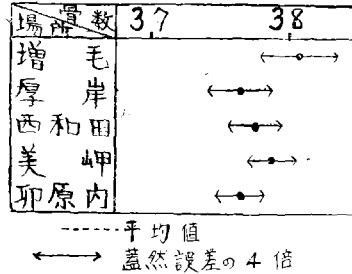 場所 骨数 37 38
増毛
厚岸
西和田
美岬
卯原内
平均値
蓋然誤差の4倍